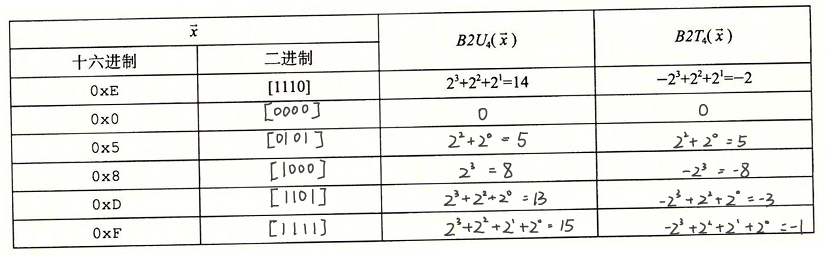 x⃗ B2U₄(x⃗) B2T₄(x⃗)
十六进制 二进制
0xE [1110] 2³+2²+2¹=14 −2³+2²+2¹=−2
0x0 [0000] 0 0
0x5 [0101] 2²+2⁰=5 2²+2⁰=5
0x8 [1000] 2³=8 -2³=-8
0xD [1101] 2³+2²+2⁰=13 -2³+2²+2⁰=-3
0xF [1111] 2³+2²+2¹+2⁰=15 -2³+2²+2¹+2⁰=-1